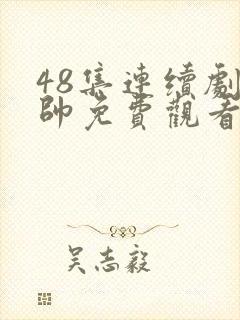 48集連續劇
帥免費觀看
吳志毅